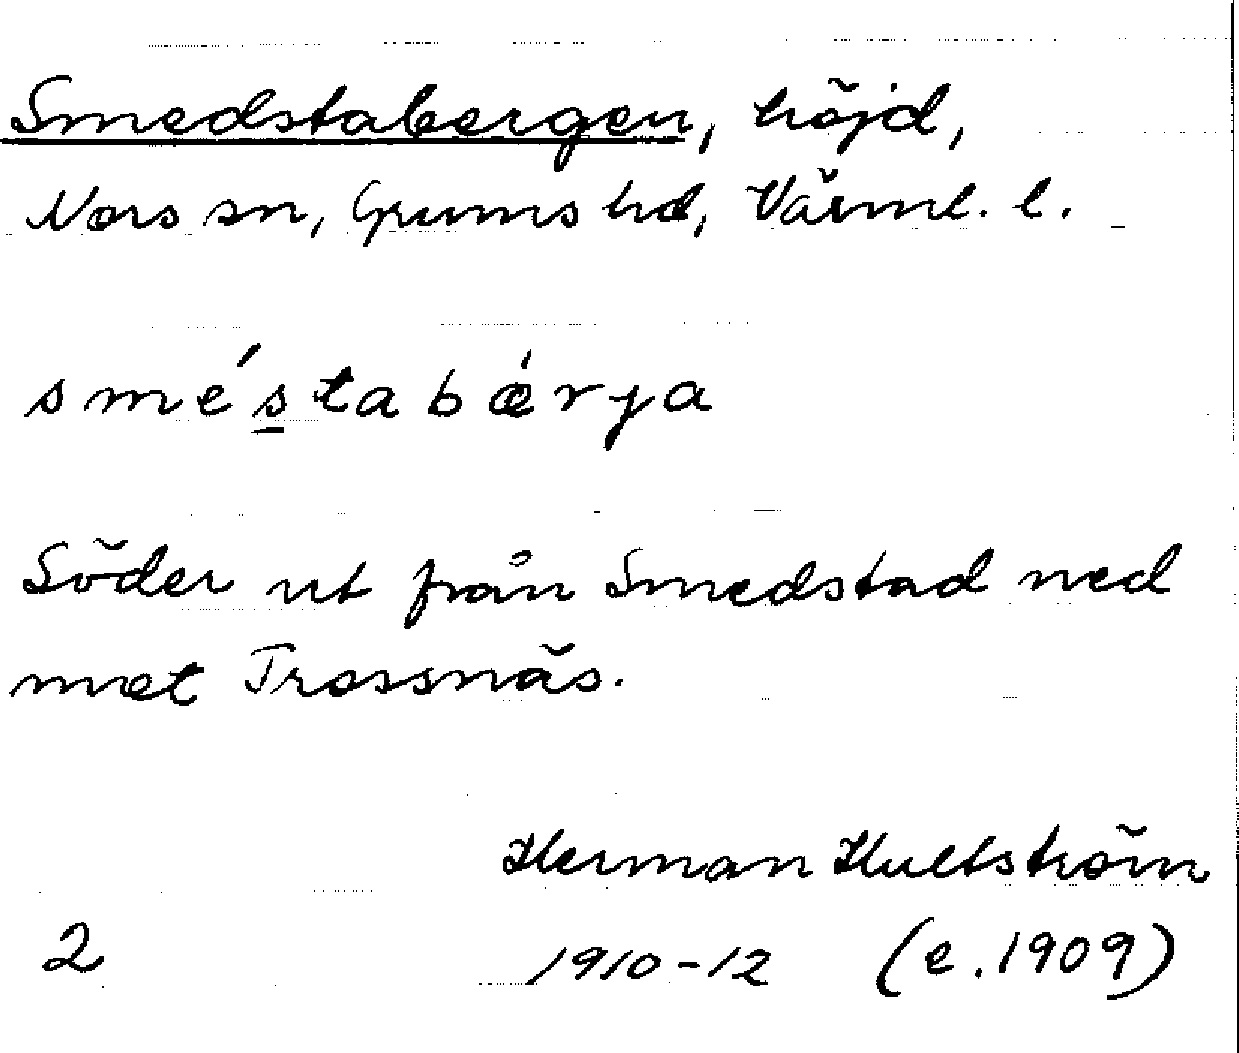 Smedstabergen, höjd,
Nors sn, Grums hd, Värml. l.
smé́stabǽrja
Söder ut från Smedstad ned
mot Trossnäs.
Herman Hultström
2 1910-12 (e. 1909)